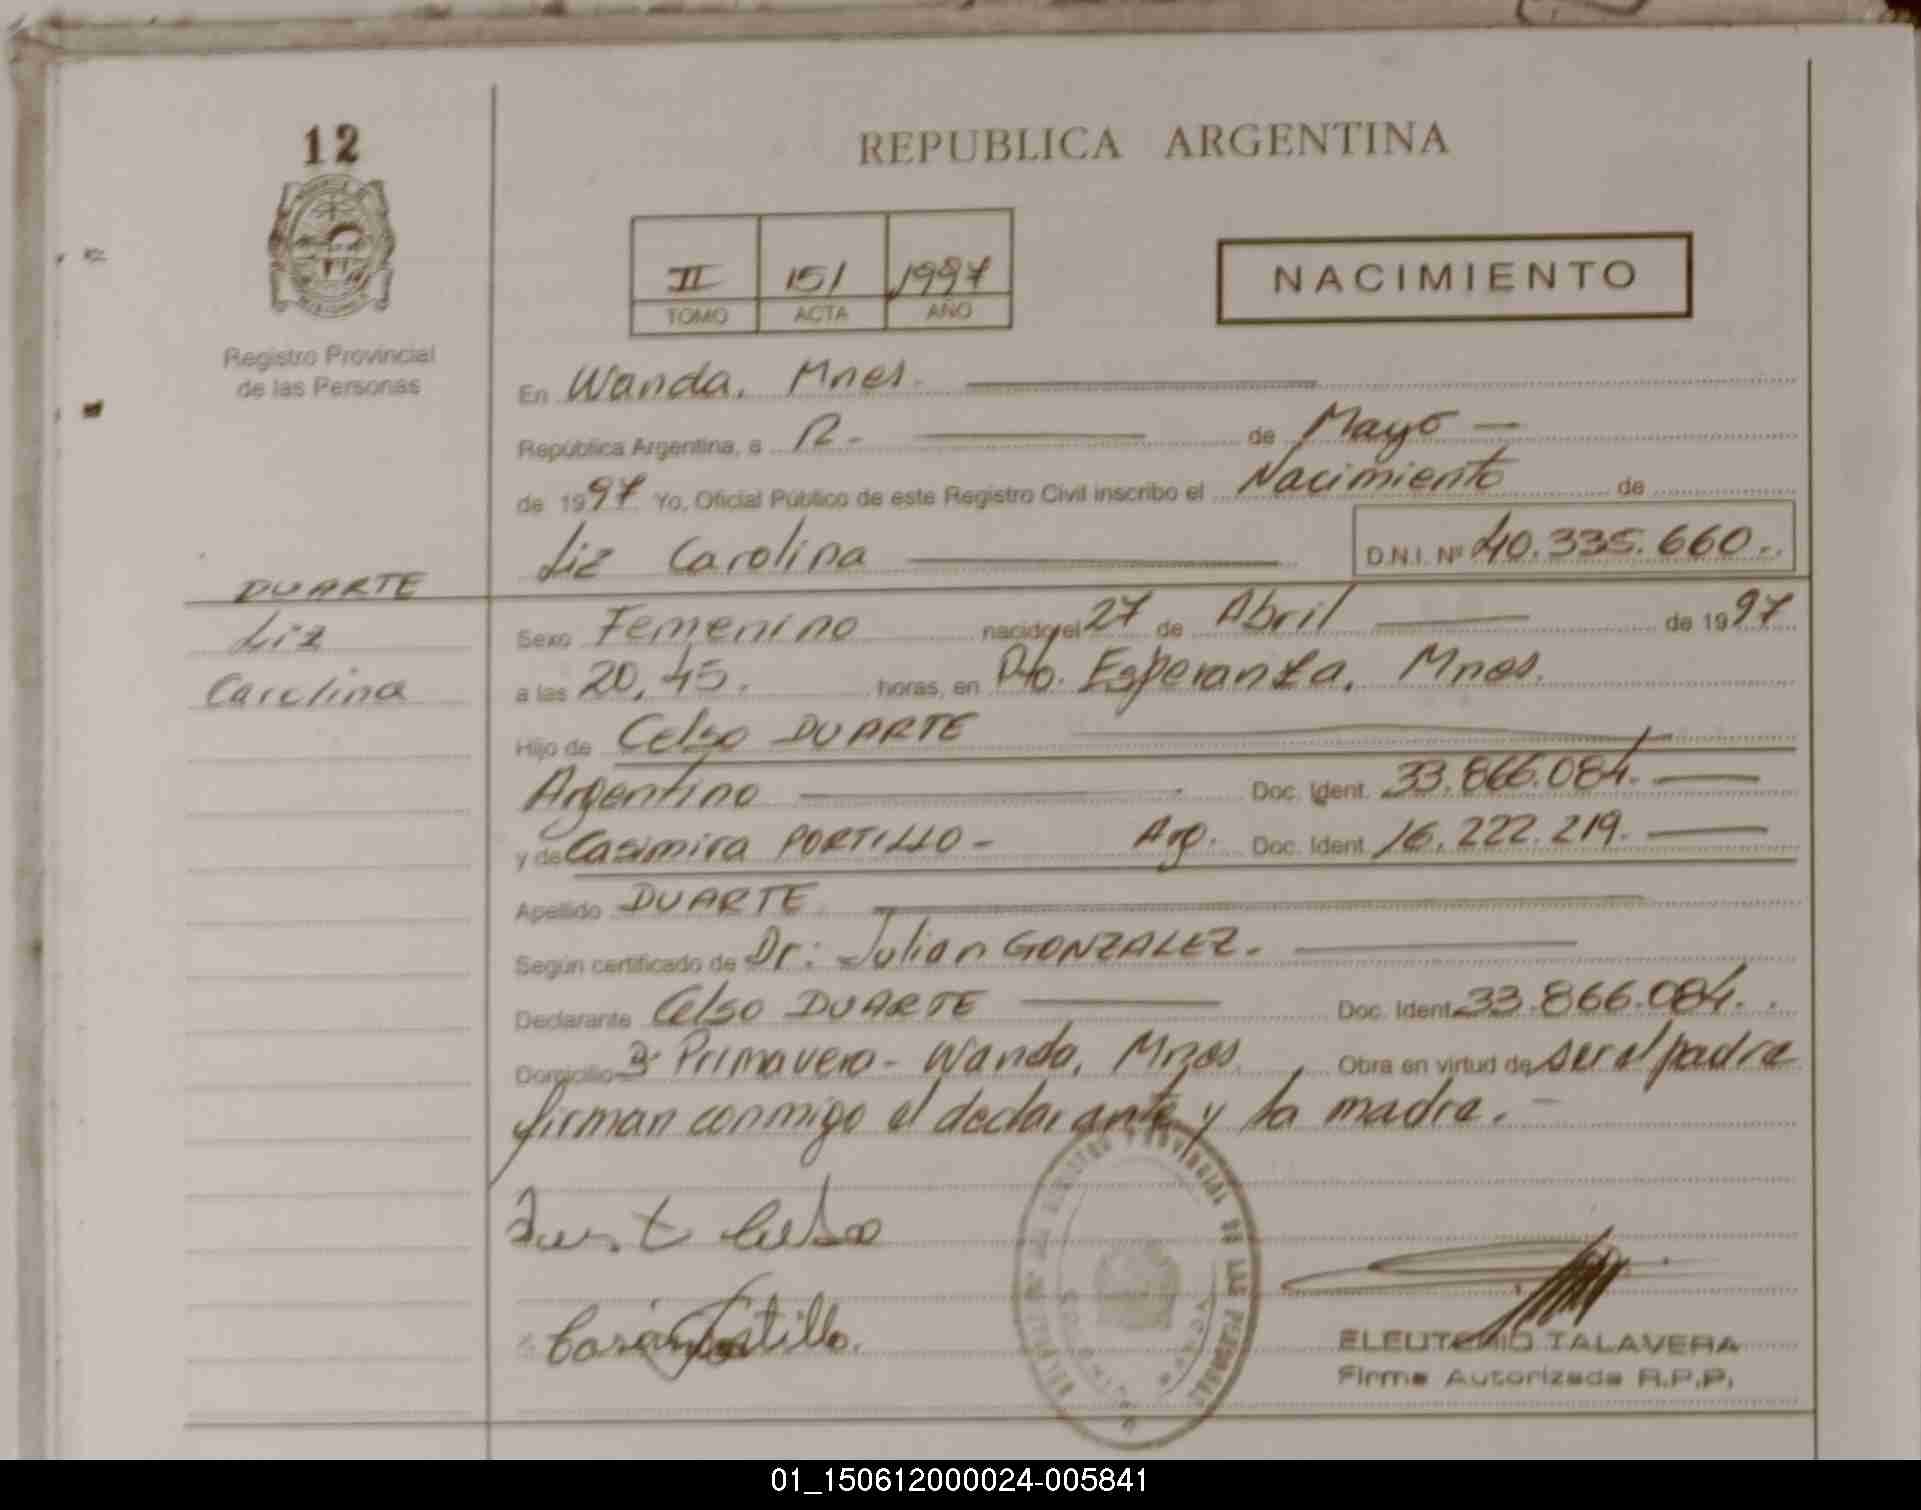 12
REPUBLICA ARGENTINA
II 151 1997
TOMO ACTA AÑO
NACIMIENTO
Registro Provincial
de las Personas
En Wanda. Mnes.
República Argentina, a 12 - de Mayo -
de 1997 Yo, Oficial Público de este Registro Civil inscribo el Nacimiento de
Liz Carolina D.N.I. Nº 40.335.660..
DUARTE
Liz
Carolina
Sexo Femenino nacido el 27 de Abril de 1997
a las 20,45. horas, en Pto. Esperanza. Mnes.
Hijo de Celso DUARTE
Argentino Doc. Ident. 33.866.084.
y de Casimira PORTILLO - Arg. Doc. Ident. 16.222.219.
Apellido DUARTE
Según certificado de Dr: Julian GONZALEZ.
Declarante Celso DUARTE Doc. Ident. 33.866.084.
Domicilio Bº Primavera - Wanda, Mnes. Obra en virtud de ser el padre
firman conmigo el declarante y la madre. -
Celso
Portillo.
PROVINCIAL DE LAS PERSONAS
ELEUTERIO TALAVERA
Firma Autorizada R.P.P.
01_150612000024-005841